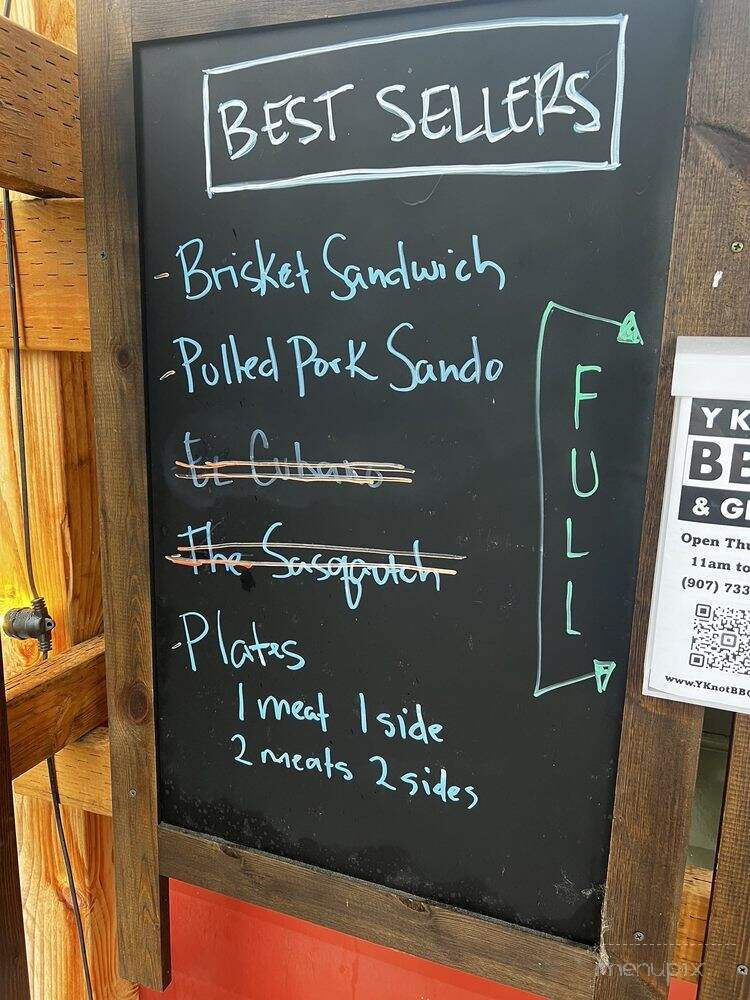 BEST SELLERS
- Brisket Sandwich
- Pulled Pork Sando
El Cubano
The Sasquatch
- Plates
1 meat 1 side
2 meats 2 sides
FULL
Y K
BB
& G
Open Thu
11am to
(907) 733
www.YKnotBBQ
menupix